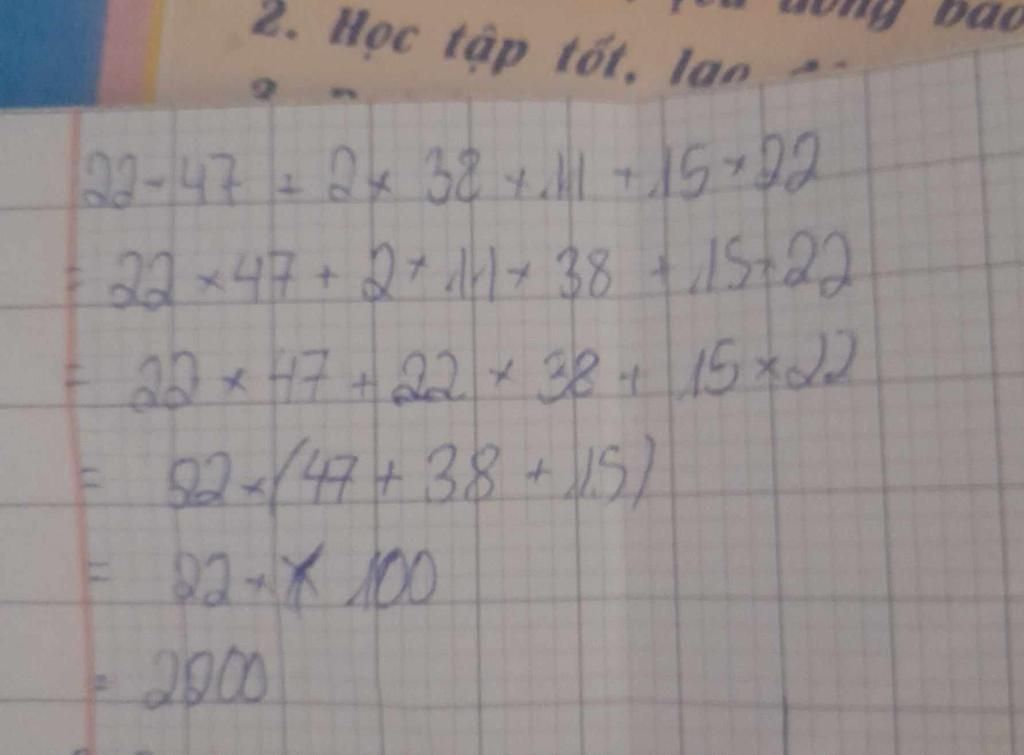 đồng bào
2. Học tập tốt, lao
22 × 47 + 2 × 38 × 11 + 15 × 22
= 22 × 47 + 2 × 11 × 38 + 15 × 22
= 22 × 47 + 22 × 38 + 15 × 22
= 22 × (47 + 38 + 15)
= 22 × 100
= 2200